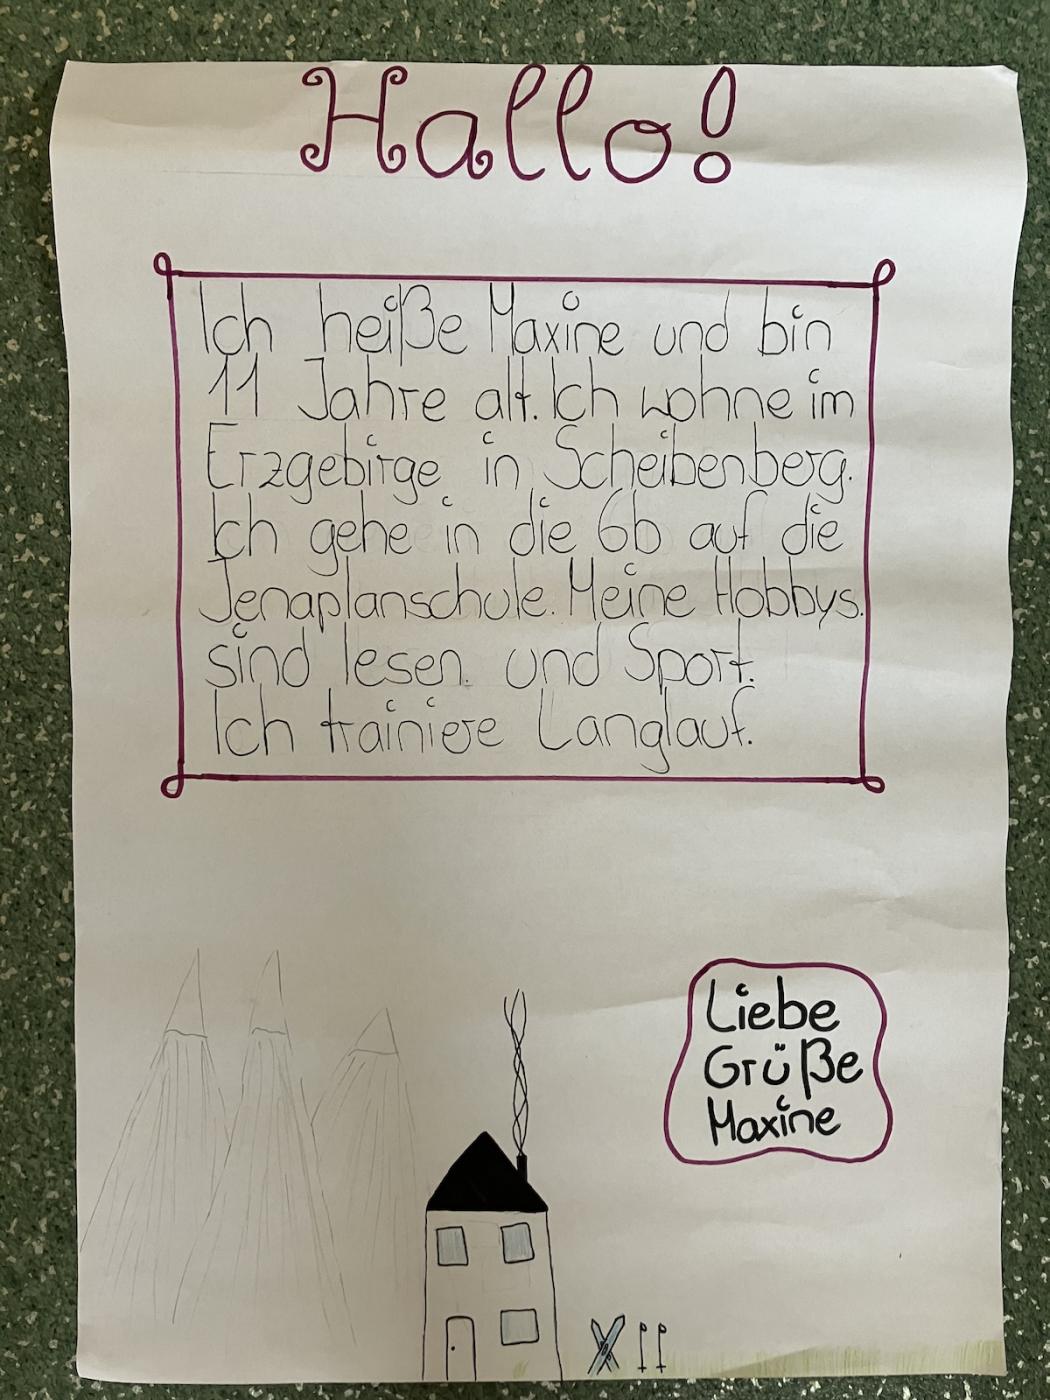 Hallo!
Ich heiße Maxine und bin
11 Jahre alt. Ich wohne im
Erzgebirge in Scheibenberg.
Ich gehe in die 6b auf die
Jenaplanschule. Meine Hobbys.
sind lesen. und Sport.
Ich trainiere Langlauf.
Liebe
Grüße
Maxine